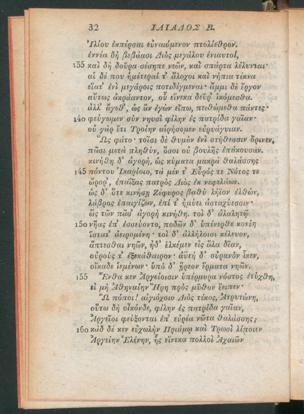 32 ΙΛΙΑΔΟΣ Β.
Ἰλίου ἐκπέρσαι εὐναιόμενον πτολίεθρον.
ἐννέα δὴ βεβάασι Διὸς μεγάλου ἐνιαυτοί,
135 καὶ δὴ δοῦρα σέσηπε νεῶν, καὶ σπάρτα λέλυνται·
αἱ δέ που ἡμέτεραί τ' ἄλοχοι καὶ νήπια τέκνα
εἵατ' ἐνὶ μεγάροις ποτιδέγμεναι· ἄμμι δὲ ἔργον
αὔτως ἀκράαντον, οὗ εἵνεκα δεῦρ' ἱκόμεσθα.
ἀλλ' ἄγεθ', ὡς ἂν ἐγὼν εἴπω, πειθώμεθα πάντες·
140 φεύγωμεν σὺν νηυσὶ φίλην ἐς πατρίδα γαῖαν·
οὐ γὰρ ἔτι Τροίην αἱρήσομεν εὐρυάγυιαν.
Ὣς φάτο· τοῖσι δὲ θυμὸν ἐνὶ στήθεσσιν ὄρινεν,
πᾶσι μετὰ πληθύν, ὅσοι οὐ βουλῆς ἐπάκουσαν.
κινήθη δ' ἀγορή, ὡς κύματα μακρὰ θαλάσσης
145 πόντου Ἰκαρίοιο, τὰ μέν τ' Εὖρός τε Νότος τε
ὤρορ', ἐπαΐξας πατρὸς Διὸς ἐκ νεφελάων.
ὡς δ' ὅτε κινήσῃ Ζέφυρος βαθὺ λήϊον ἐλθών,
λάβρος ἐπαιγίζων, ἐπί τ' ἠμύει ἀσταχύεσσιν·
ὣς τῶν πᾶσ' ἀγορὴ κινήθη. τοὶ δ' ἀλαλητῷ
150 νῆας ἔπ' ἐσσεύοντο, ποδῶν δ' ὑπένερθε κονίη
ἵστατ' ἀειρομένη· τοὶ δ' ἀλλήλοισι κέλευον,
ἅπτεσθαι νηῶν, ἠδ' ἑλκέμεν εἰς ἅλα δῖαν,
οὐρούς τ' ἐξεκάθαιρον· ἀϋτὴ δ' οὐρανὸν ἷκεν,
οἴκαδε ἱεμένων· ὑπὸ δ' ᾕρεον ἕρματα νηῶν.
155 Ἔνθα κεν Ἀργείοισιν ὑπέρμορα νόστος ἐτύχθη,
εἰ μὴ Ἀθηναίην Ἥρη πρὸς μῦθον ἔειπεν·
Ὢ πόποι! αἰγιόχοιο Διὸς τέκος, Ἀτρυτώνη,
οὕτω δὴ οἶκόνδε, φίλην ἐς πατρίδα γαῖαν,
Ἀργεῖοι φεύξονται ἐπ' εὐρέα νῶτα θαλάσσης;
160 κὰδ δέ κεν εὐχωλὴν Πριάμῳ καὶ Τρωσὶ λίποιεν
Ἀργείην Ἑλένην, ἧς εἵνεκα πολλοὶ Ἀχαιῶν